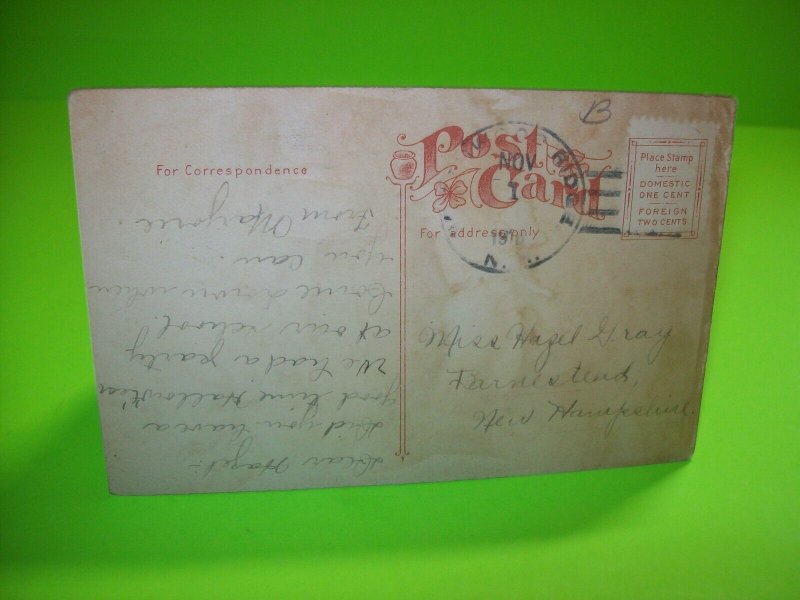 B
Post Card
NOV
1
Place Stamp
here
DOMESTIC
ONE CENT
FOREIGN
TWO CENTS
For Correspondence
For address only
Miss Hazel Gray
New Hampshire.
Dear Hazel:-
Did you have a
good time Hallowe'en
We had a party
at our school.
Come down when
you can.
From Marjorie.